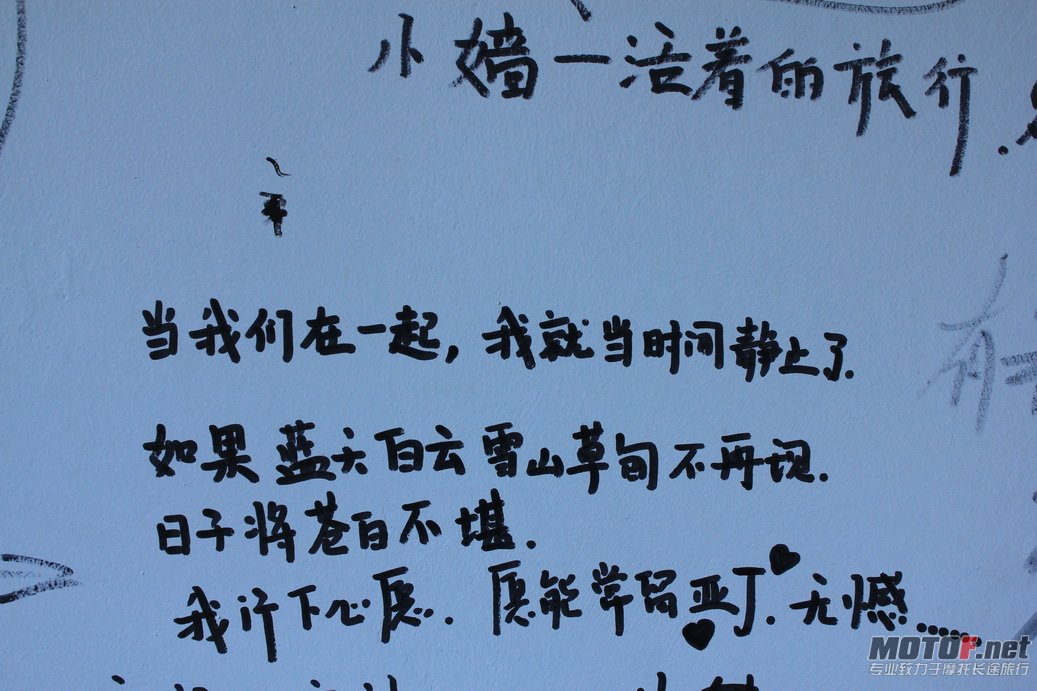 小嫱一活着的旅行.
当我们在一起,我就当时间静止了.
如果蓝天白云雪山草旬不再现.
日子将苍白不堪.
我许下心愿.愿能常留亚丁.无憾......
MOTOF.net
专业致力于摩托长途旅行